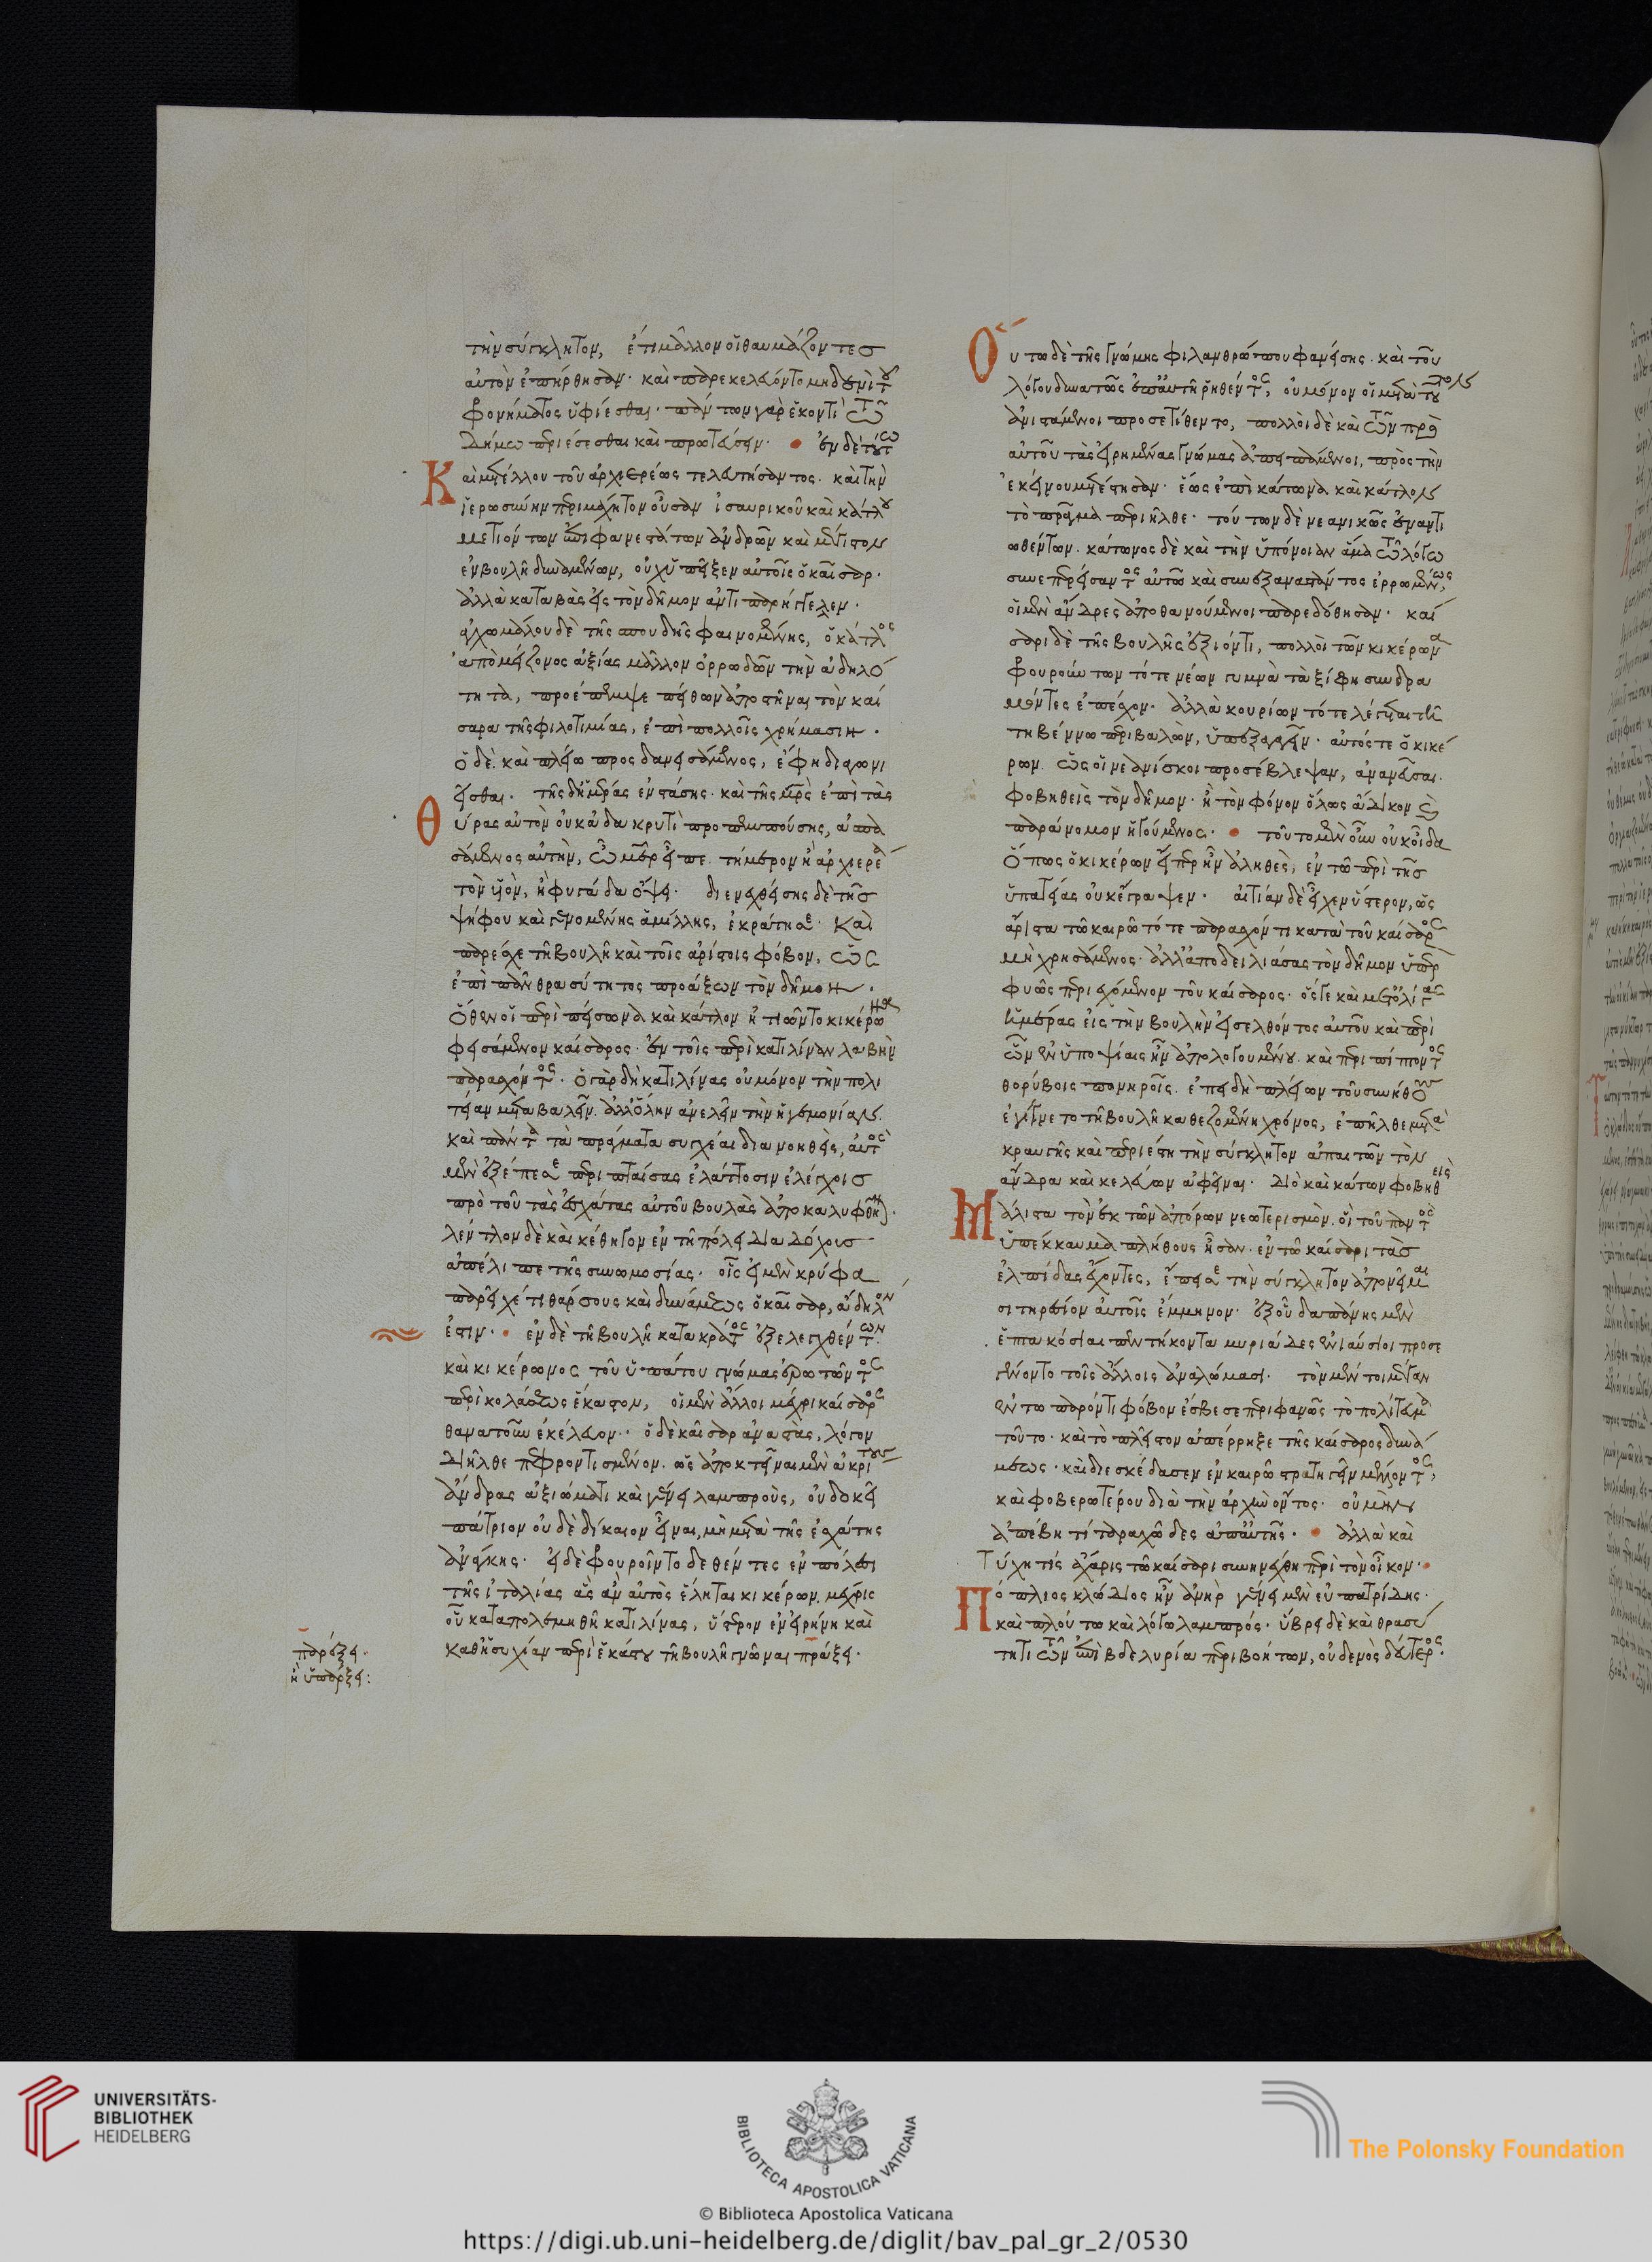 τὴν σύγκλητον, ἔτι μᾶλλον οἱ θαυμάζοντες
αὐτὸν ἐπήρθησαν· καὶ παρεκελεύοντο μηδενὶ τοῦ
φρονήματος ὑφίεσθαι· πάντων γὰρ ἑκόντι τῶ
δήμω περιέσεσθαι καὶ πρωτεύσειν· ἐν δὲ τούτω
Καὶ μετέλλου τοῦ ἀρχιερέως τελευτήσαντος· καὶ τὴν
ἱερωσύνην περιμάχητον οὖσαν ἰσαυρικοῦ καὶ κάτλου
μετιόντων ἐπιφανεστάτων ἀνδρῶν καὶ μέγιστον
ἐν βουλῆ δυναμένων, οὐχ ὑπεῖξεν αὐτοῖς ὁ καῖσαρ·
ἀλλὰ καταβὰς εἰς τὸν δῆμον ἀντιπαρήγγελλεν·
ἀγχωμάλου δὲ τῆς σπουδῆς φαινομένης, ὁ κάτλος
ἀπὸ μείζονος ἀξίας μᾶλλον ὀρρωδῶν τὴν ἀδηλό
τητα, προέπεμψε πείθων ἀποστῆναι τὸν καί
σαρα τῆς φιλοτιμίας, ἐπὶ πολλοῖς χρήμασιν·
ὁ δὲ καὶ πλείω προσδανεισάμενος, ἔφη διαγωνι
εῖσθαι· τῆς δ' ἡμέρας ἐνστάσης· καὶ τῆς μητρὸς ἐπὶ τὰς
Θύρας αὐτὸν οὐκ ἀδακρυτὶ προπεμπούσης, ἀσπα
σάμενος αὐτὴν, ὦ μῆτερ εἶπε τήμερον ἢ ἀρχιερέα
τὸν υἱὸν, ἢ φυγάδα ὄψει· διενεχθείσης δὲ τῆς
ψήφου καὶ γενομένης ἁμίλλης, ἐκράτησε· Καὶ
παρέσχε τῆ βουλῆ καὶ τοῖς ἀρίστοις φόβον, ὡς
ἐπὶ πᾶν θρασύτητος προάξων τὸν δῆμον·
Ὅθεν οἱ περὶ πείσωνα καὶ κάτλον ἠτιῶντο κικέρωνα
φεισάμενον καίσαρος· ἐν τοῖς περὶ κατιλίναν λαβὴν
παρασχόντος· ὁ γὰρ δὴ κατιλίνας οὐ μόνον τὴν πολι
τείαν μεταβαλεῖν· ἀλλ' ὅλην ἀνελεῖν τὴν ἡγεμονίαν
καὶ πάντα τὰ πράγματα συγχέαι διανοηθεὶς, αὐτὸς
μὲν ἐξέπεσε περιπταίσας ἐλάττοσιν ἐλέγχοις
πρὸ τοῦ τὰς ἐσχάτας αὐτοῦ βουλὰς ἀποκαλυφθῆναι·
λέντλον δὲ καὶ κέθηγον ἐν τῆ πόλει διαδόχους
ἀπέλιπε τῆς συνωμοσίας· οἷς εἰ μὲν κρύφα
παρεῖχέ τι θάρσους καὶ δυνάμεως ὁ καῖσαρ, ἄδηλόν
ἐστιν· ἐν δὲ τῆ βουλῆ κατὰ κράτος ἐξελεγχθέντων·
καὶ κικέρωνος τοῦ ὑπάτου γνώμας ἐρωτῶντος
περὶ κολάσεως ἕκαστον, οἱ μὲν ἄλλοι μέχρι καίσαρος
θανατοῦν ἐκέλευον· ὁ δὲ καῖσαρ ἀναστὰς, λόγον
διῆλθε πεφροντισμένον· ὡς ἀποκτεῖναι μὲν ἀκρίτους
ἄνδρας ἀξιώματι καὶ γένει λαμπροὺς, οὐ δοκεῖ
πάτριον οὐδὲ δίκαιον εἶναι, μὴ μετὰ τῆς ἐσχάτης
ἀνάγκης· εἰ δὲ φρουροῖντο δεθέντες ἐν πόλεσι
τῆς ἰταλίας ἃς ἂν αὐτὸς ἕληται κικέρων, μέχρις
οὗ καταπολεμηθῆ κατιλίνας, ὕστερον ἐν εἰρήνη καὶ
καθ' ἡσυχίαν περὶ ἑκάστου τῆ βουλῆ γνῶναι πράξει·
παρέξει·
ἢ ὑπάρξει:
Οὕτω δὲ τῆς γνώμης φιλανθρώπου φανείσης· καὶ τοῦ
λόγου δυνατῶς ἐπ' αὐτῆ ῥηθέντος, οὐ μόνον οἱ μετὰ τοῦτον
ἀνιστάμενοι προσετίθεντο, πολλοὶ δὲ καὶ τῶν πρὸ
αὐτοῦ τὰς εἰρημένας γνώμας ἀπειπάμενοι, πρὸς τὴν
ἐκείνου μετέστησαν· ἕως ἐπὶ κάτωνα καὶ κάτλον
τὸ πρᾶγμα περιῆλθε· τούτων δὲ νεανικῶς ἐναντι
ωθέντων· κάτωνος δὲ καὶ τὴν ὑπόνοιαν ἅμα τῶ λόγω
συνεπερείσαντος αὐτῶ καὶ συνεξαναστάντος ἐρρωμένως,
οἱ μὲν ἄνδρες ἀποθανούμενοι παρεδόθησαν· καί
σαρι δὲ τῆς βουλῆς ἐξιόντι, πολλοὶ τῶν κικέρωνα
φρουρούντων τότε νέων γυμνὰ τὰ ξίφη συνδρα
μόντες ἐπέσχον· ἀλλὰ κουρίων τότε λέγεται τῆ
τηβέννω περιβαλὼν, ὑπεξαγαγεῖν· αὐτός τε ὁ κικέ
ρων· ὡς οἱ νεανίσκοι προσέβλεψαν, ἀνανεῦσαι·
φοβηθεὶς τὸν δῆμον· ἢ τὸν φόνον ὅλως ἄδικον καὶ
παράνομον ἡγούμενος· τοῦτο μὲν οὖν οὐκ οἶδα
Ὅπως ὁ κικέρων εἴπερ ἦν ἀληθὲς, ἐν τῶ περὶ τῆς
ὑπατείας οὐκ ἔγραψεν· αἰτίαν δὲ εἶχεν ὕστερον, ὡς
ἄριστα τῶ καιρῶ τότε παρασχόντι κατὰ τοῦ καίσαρος
μὴ χρησάμενος· ἀλλ' ἀποδειλιάσας τὸν δῆμον ὑπερ
φυῶς περιεχόμενον τοῦ καίσαρος· ὅς γε καὶ μετ' ὀλίγας
ἡμέρας εἰς τὴν βουλὴν εἰσελθόντος αὐτοῦ καὶ περὶ
ὧν ἐν ὑποψίαις ἦν ἀπολογουμένου· καὶ περιπίπτοντος
θορύβοις πονηροῖς· ἐπειδὴ πλείων τοῦ συνήθους
ἐγίγνετο τῆ βουλῆ καθεζομένη χρόνος, ἐπῆλθε μετὰ
κραυγῆς καὶ περιέστη τὴν σύγκλητον ἀπαιτῶν τὸν
ἄνδρα καὶ κελεύων ἀφεῖναι· διὸ καὶ κάτων φοβηθεὶς
Μάλιστα τὸν ἐκ τῶν ἀπόρων νεωτερισμὸν· οἳ τοῦ παντὸς
ὑπέκκαυμα πλήθους ἦσαν· ἐν τῶ καίσαρι τὰς
ἐλπίδας ἔχοντες, ἔπεισε τὴν σύγκλητον ἀπονεῖμαι
σιτηρέσιον αὐτοῖς ἔμμηνον· ἐξ οὗ δαπάνης μὲν
ἑπτακόσιαι πεντήκοντα μυριάδες ἐνιαύσιοι προσε
γένοντο τοῖς ἄλλοις ἀναλώμασι· τὸν μέντοι μέγαν
ἐν τῶ παρόντι φόβον ἔσβεσε περιφανῶς τὸ πολίτευμα
τοῦτο· καὶ τὸ πλεῖστον ἀπέρρηξε τῆς καίσαρος δυνά
μεως· καὶ διεσκέδασεν ἐν καιρῶ στρατηγεῖν μέλλοντος,
καὶ φοβερωτέρου διὰ τὴν ἀρχὴν ὄντος· οὐ μὴν
ἀπέβη τί ταραχῶδες ἀπ' αὐτῆς· ἀλλὰ καὶ
Τύχη τίς ἄχαρις τῶ καίσαρι συνηνέχθη περὶ τὸν οἶκον·
Πόπλιος κλώδιος ἦν ἀνὴρ γένει μὲν εὐπατρίδης·
καὶ πλούτω καὶ λόγω λαμπρός· ὕβρει δὲ καὶ θρασύ
τητι τῶν ἐπὶ βδελυρία περιβοήτων, οὐδενὸς δεύτερος·
UNIVERSITÄTS-
BIBLIOTHEK
HEIDELBERG
BIBLIOTECA APOSTOLICA VATICANA
The Polonsky Foundation
© Biblioteca Apostolica Vaticana
https://digi.ub.uni-heidelberg.de/diglit/bav_pal_gr_2/0530